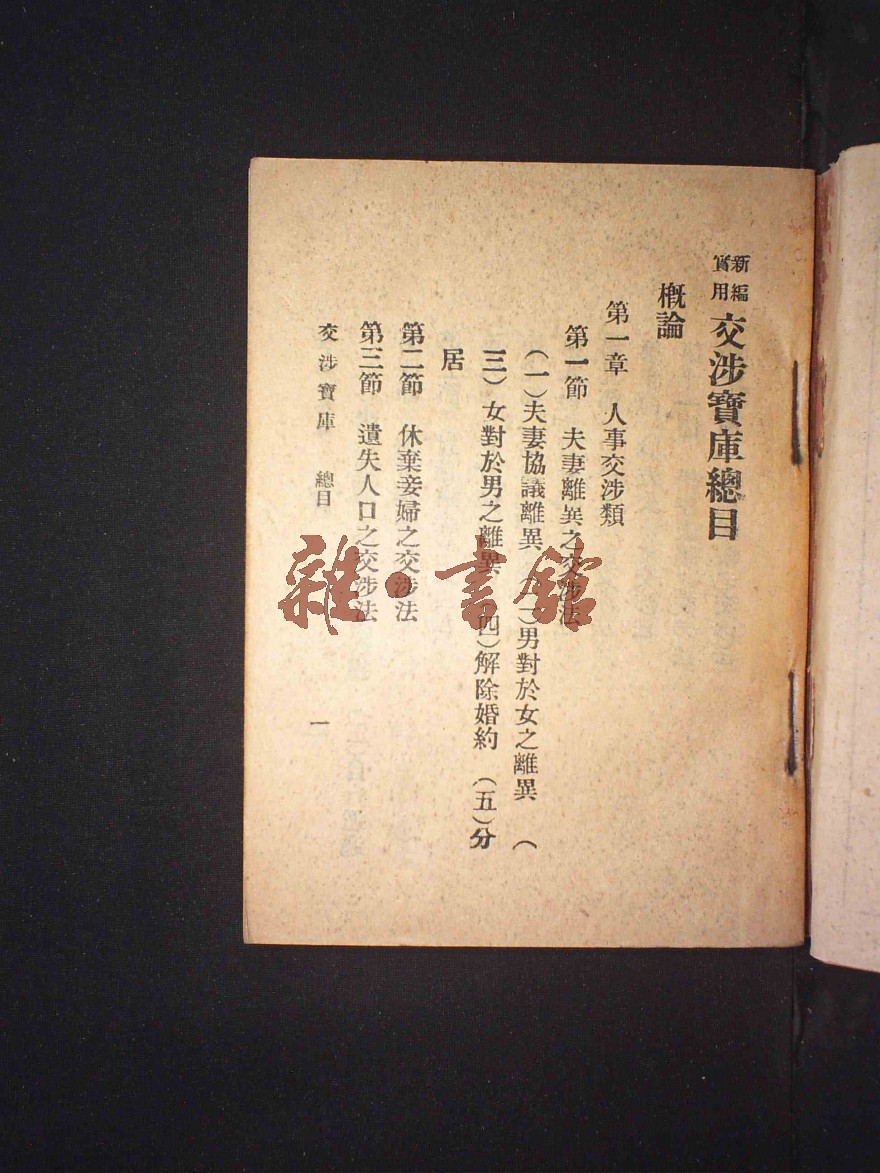 新編實用 交涉寶庫總目
概論
第一章 人事交涉類
第一節 夫妻離異之交涉法
(一)夫妻協議離異 (二)男對於女之離異 (
三)女對於男之離異 (四)解除婚約 (五)分
居
第二節 休棄妾婦之交涉法
第三節 遺失人口之交涉法
交涉寶庫 總目 一
雜·書館